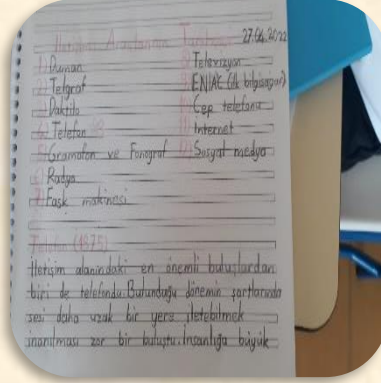 İletişim Araçlarının Tarihçesi 27.04.2022
1) Duman
2) Telgraf
3) Daktilo
4) Telefon
5) Gramofon ve Fonograf
6) Radyo
7) Faşk makinesi
8) Televizyon
9) ENIAC (ilk bilgisayar)
10) Cep telefonu
11) İnternet
12) Sosyal medya
Telefon (1875)
İletişim alanindaki en önemli buluşlardan
biri de telefondu. Bulunduğu dönemin şartlarında
sesi daha uzak bir yere iletebilmek
inanılması zor bir buluştu. İnsanlığa büyük